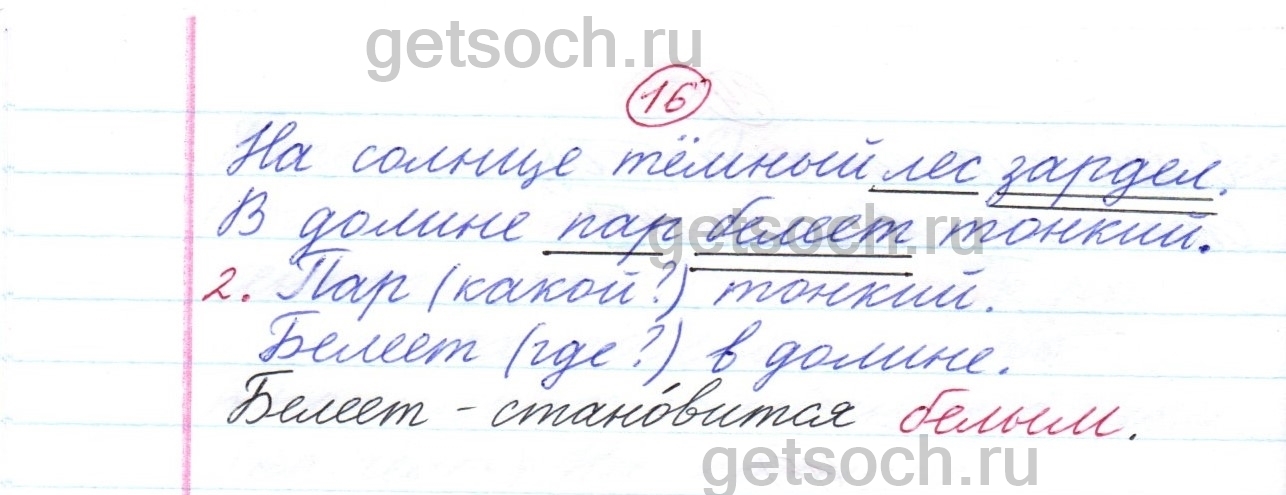 getsoch.ru
16
На солнце тёмный лес зардел.
В долине пар белеет тонкий.
getsoch.ru
2. Пар (какой?) тонкий.
Белеет (где?) в долине.
Белеет - стано́вится белым.
getsoch.ru